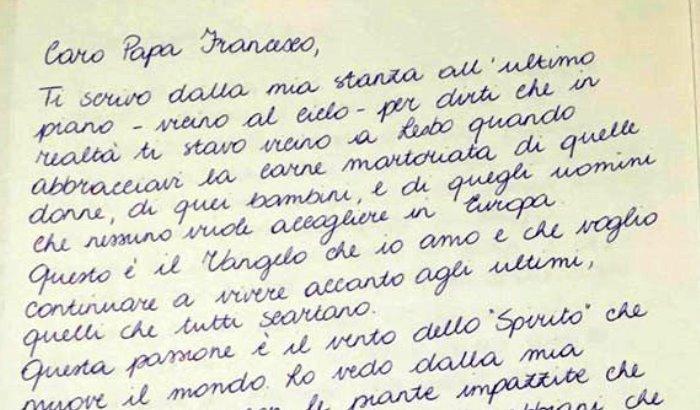 Caro Papa Francesco,
Ti scrivo dalla mia stanza all'ultimo
piano - vicino al cielo - per dirti che in
realtà ti stavo vicino a Lesbo quando
abbracciavi la carne martoriata di quelle
donne, di quei bambini, e di quegli uomini
che nessuno vuole accogliere in Europa.
Questo è il Vangelo che io amo e che voglio
continuare a vivere accanto agli ultimi,
quelli che tutti scartano.
Questa passione è il vento dello "Spirito" che
muove il mondo. Lo vedo dalla mia
le piante impazzite che
che